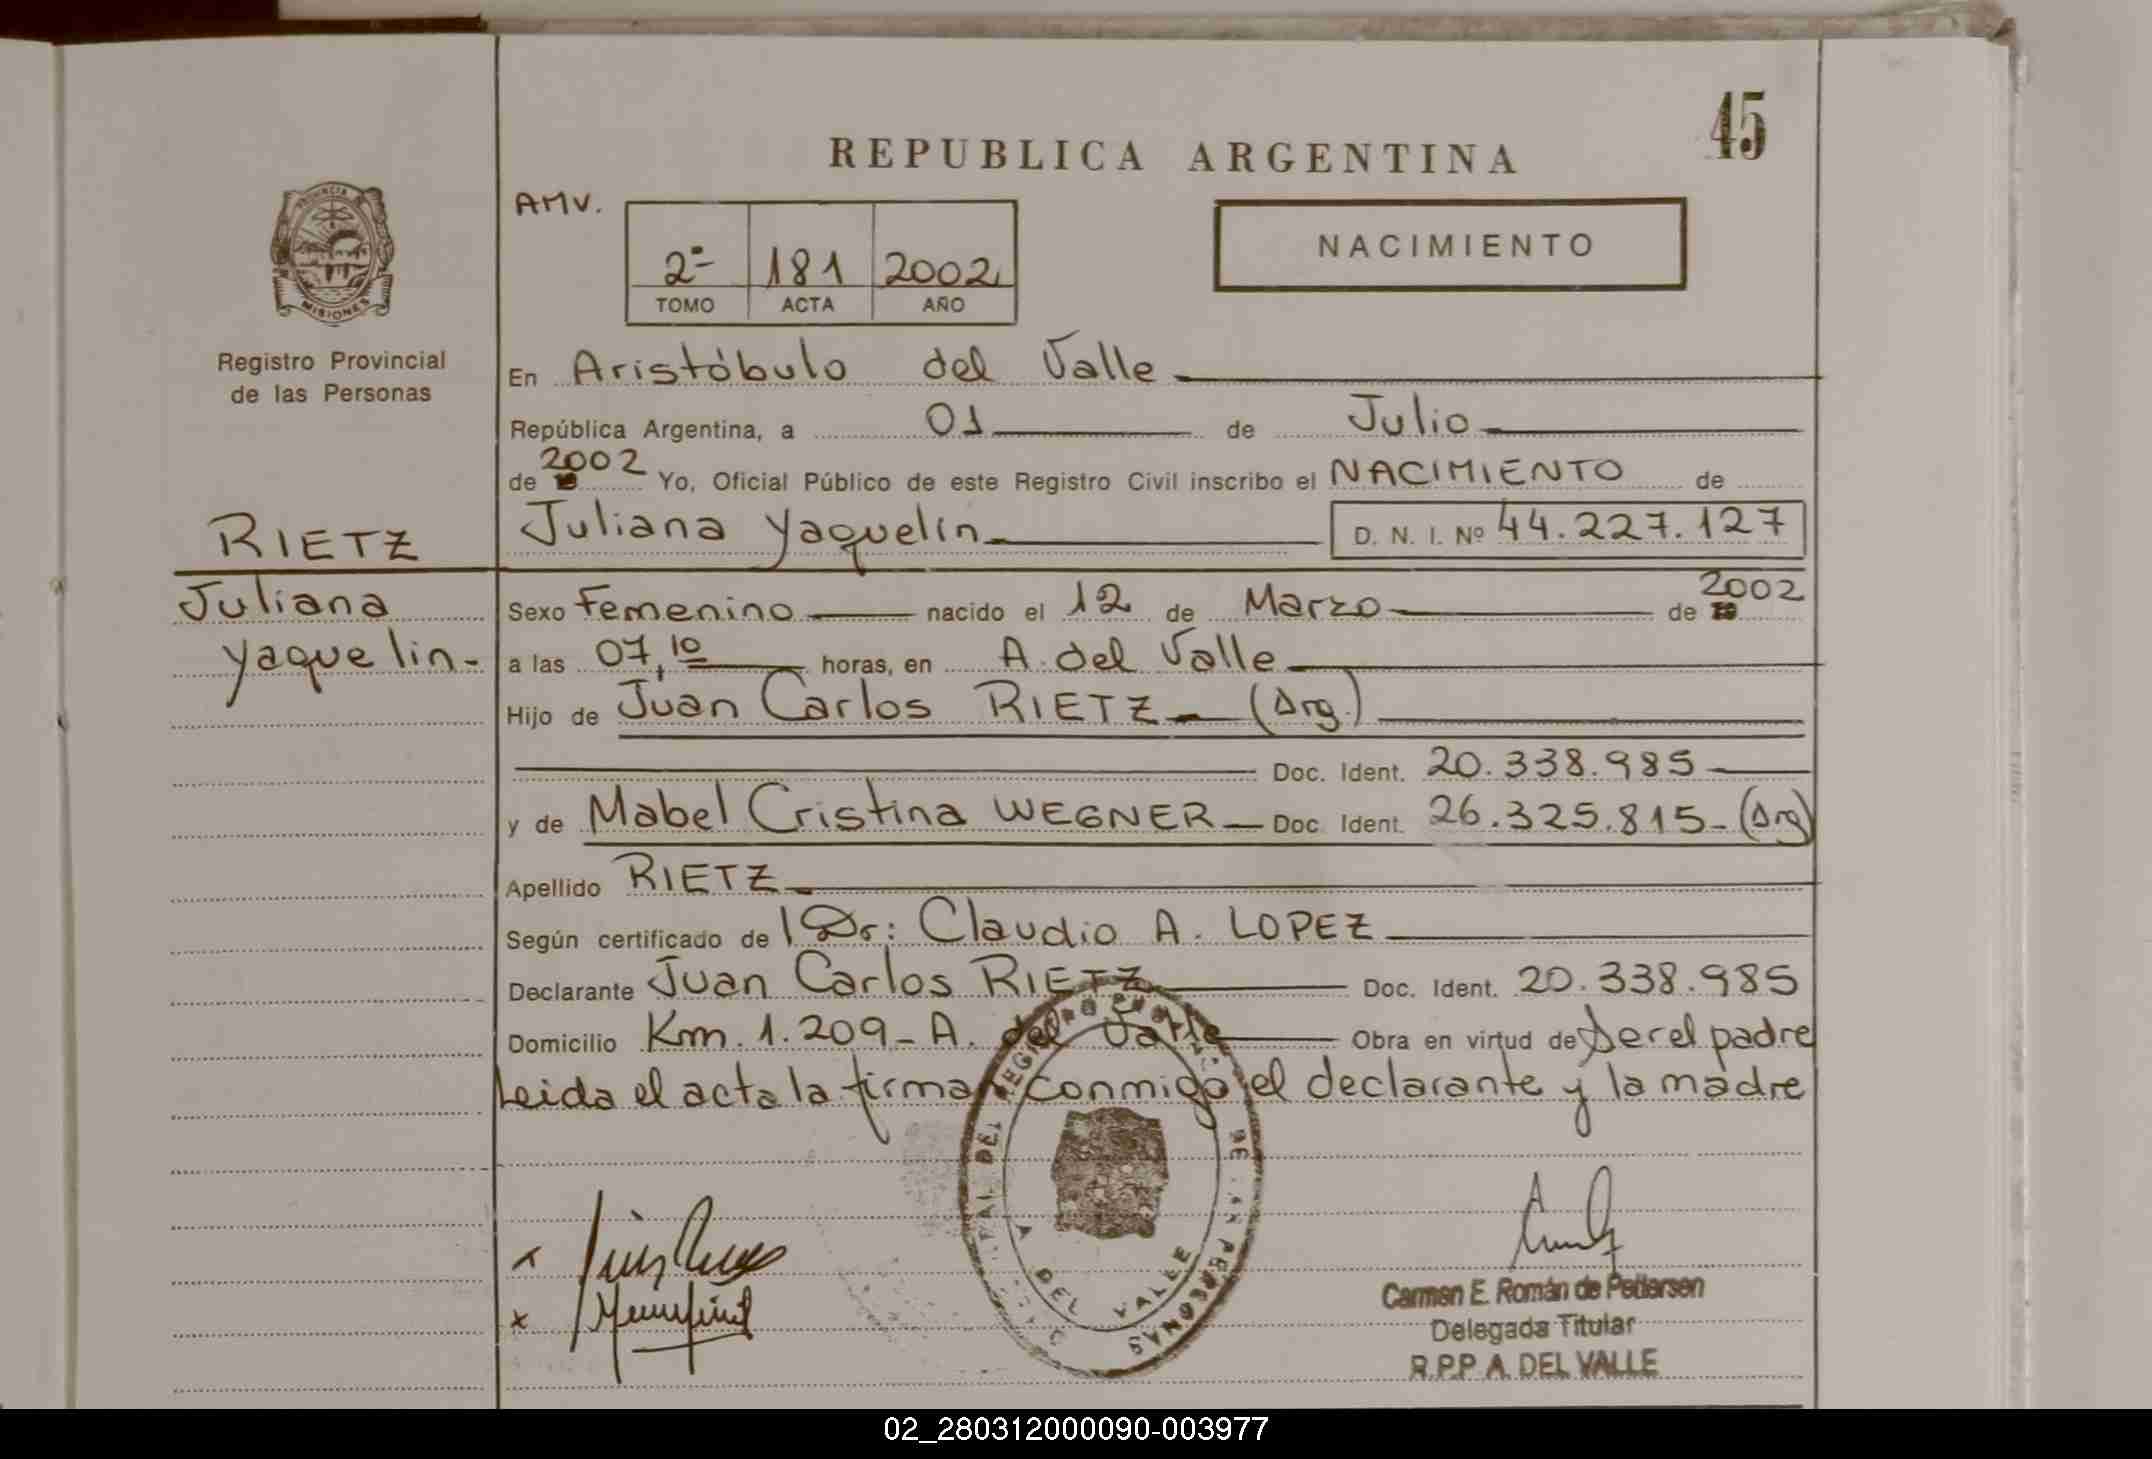 45
REPUBLICA ARGENTINA
AMV.
2º 181 2002
TOMO ACTA AÑO
NACIMIENTO
PROVINCIA DE
MISIONES
Registro Provincial
de las Personas
En Aristóbulo del Valle
República Argentina, a 01 de Julio
de 2002 Yo, Oficial Público de este Registro Civil inscribo el NACIMIENTO de
Juliana Yaquelin D. N. I. Nº 44.227.127
RIETZ
Juliana
Yaquelin-
Sexo Femenino nacido el 12 de Marzo de 2002
a las 07,10 horas, en A. del Valle
Hijo de Juan Carlos RIETZ (Arg.)
Doc. Ident. 20.338.985
y de Mabel Cristina WEGNER Doc. Ident. 26.325.815- (Arg)
Apellido RIETZ
Según certificado de Dr: Claudio A. LOPEZ
Declarante Juan Carlos RIETZ Doc. Ident. 20.338.985
Domicilio Km. 1.209- A. del Valle Obra en virtud de ser el padre
Leida el acta la firman conmigo el declarante y la madre
DEL REGISTRO DE LAS PERSONAS
A DEL VALLE
x
x
Carmen E. Román de Pettersen
Delegada Titular
R.P.P A. DEL VALLE
02_280312000090-003977